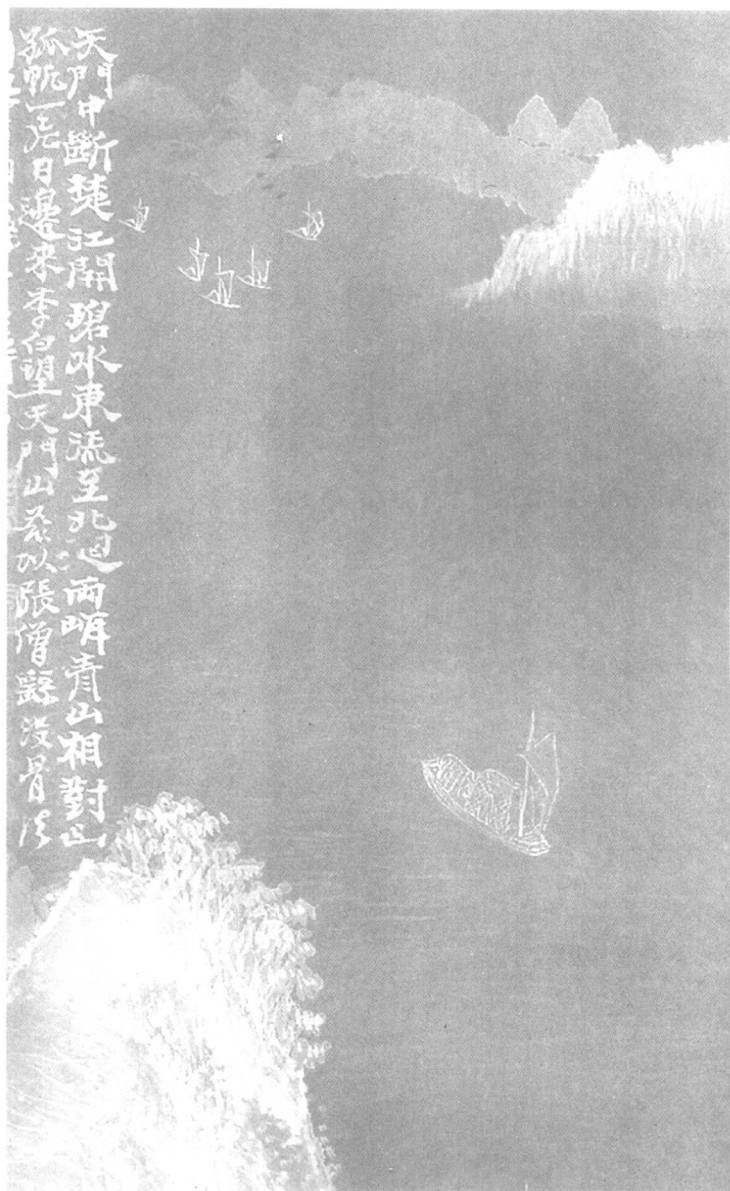 天門中斷楚江開碧水東流至北迴兩岸青山相對出
孤帆一片日邊來李白望天門山茲以張僧繇沒骨法